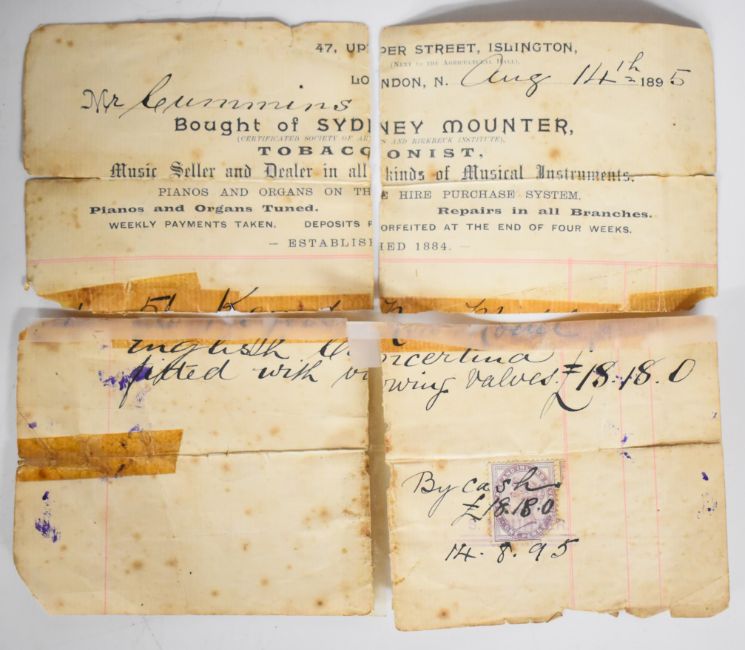 47, UPPER STREET, ISLINGTON,
(NEXT TO THE AGRICULTURAL HALL),
LONDON, N. Aug 14th 1895
Mr Cummins
Bought of SYDNEY MOUNTER,
(CERTIFICATED SOCIETY OF ARTS AND BIRKBECK INSTITUTE),
TOBACCONIST,
Music Seller and Dealer in all kinds of Musical Instruments.
PIANOS AND ORGANS ON THE HIRE PURCHASE SYSTEM.
Pianos and Organs Tuned. Repairs in all Branches.
WEEKLY PAYMENTS TAKEN. DEPOSITS FORFEITED AT THE END OF FOUR WEEKS.
— ESTABLISHED 1884. —
English Concertina
fitted with bowing valves £18.18.0
By cash
£18.18.0
14.8.95